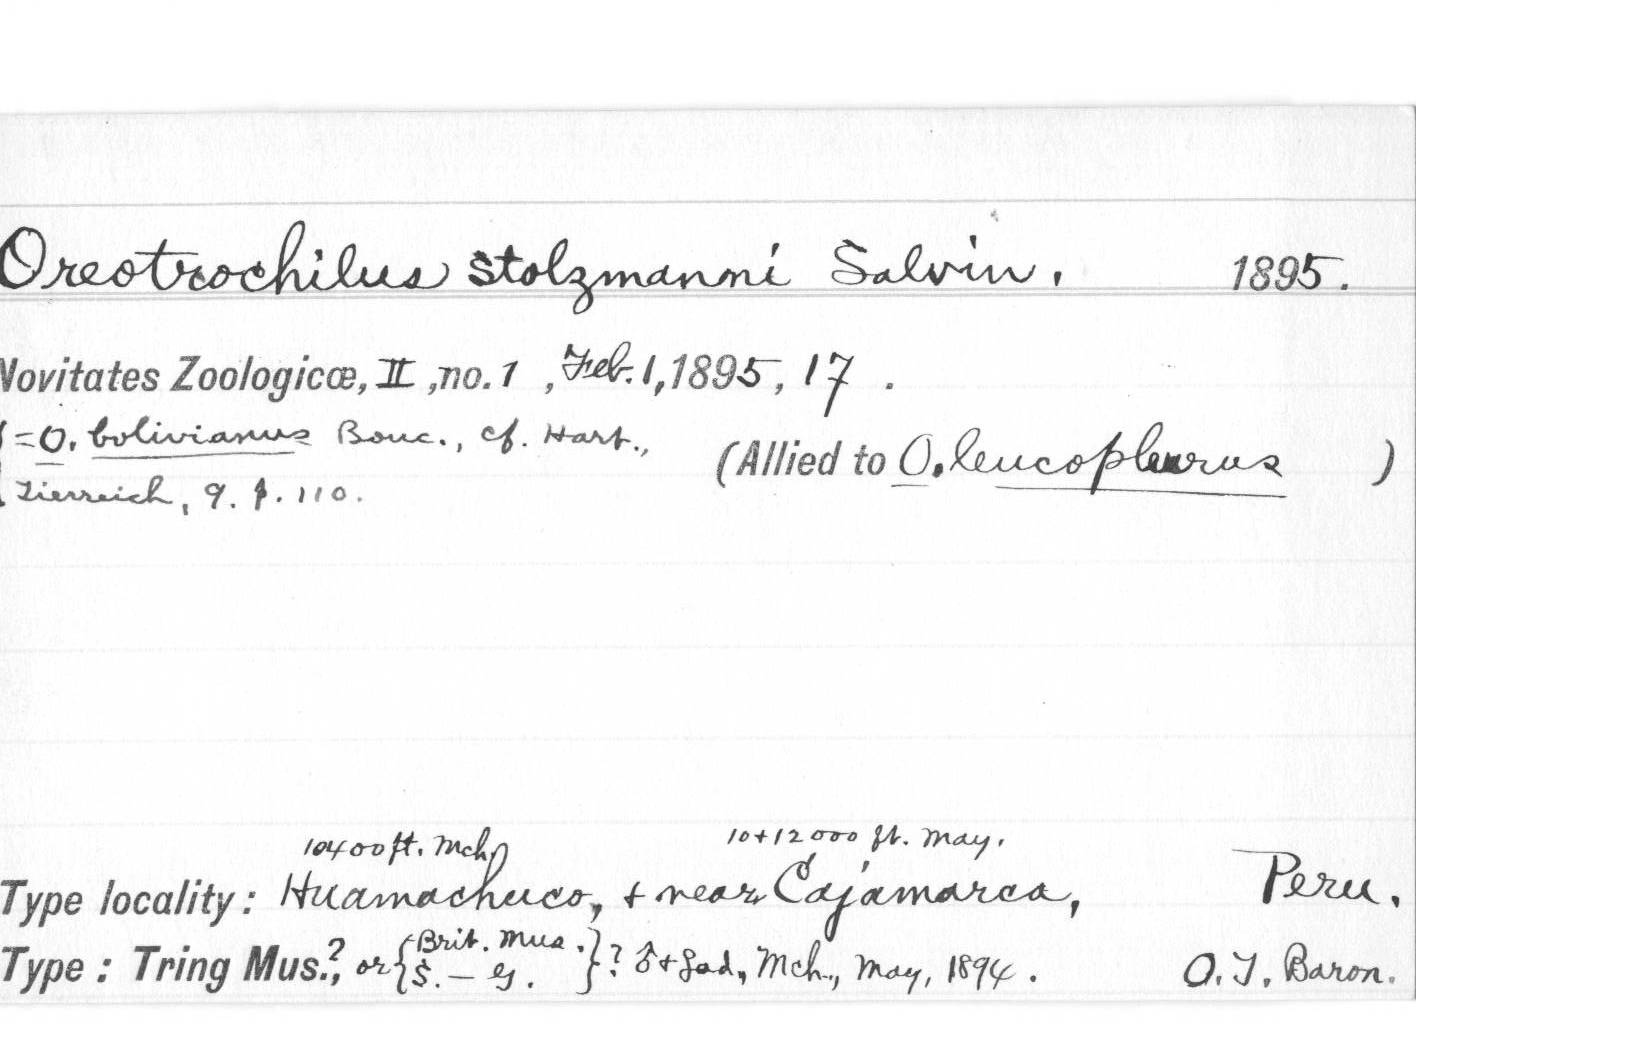 Oreotrochilus stolzmanni Salvin. 1895.
Novitates Zoologicæ, II, no. 1, Feb. 1, 1895, 17.
{=O. bolivianus Bouc., cf. Hart.,
Tierreich, 9. p. 110.
(Allied to O. leucopleurus )
10400 ft. Mch. 10+12000 ft. May.
Type locality: Huamachuco, + near Cajamarca, Peru.
Type: Tring Mus.?, or {Brit. Mus. S. – G.}? ♂ + ♀ ad., Mch., May, 1894. O.T. Baron.